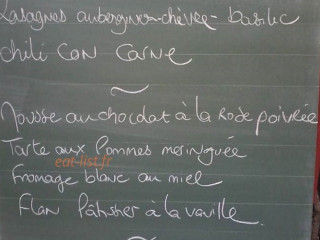 Lasagnes aubergines-chèvre-basilic
Chili Con Carne
Mousse au chocolat à la Rose poivrée
Tarte aux Pommes meringuée
eat-list.fr
Fromage blanc au miel
Flan Pâtissier à la vanille.